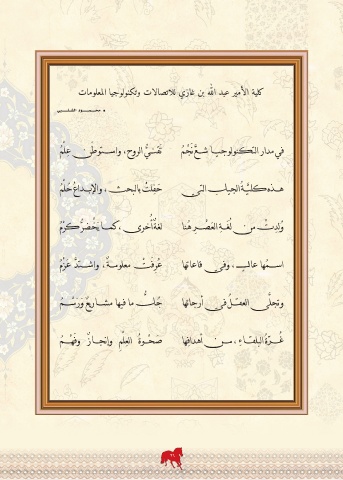 كلية الأمير عبد الله بن غازي للاتصالات وتكنولوجيا المعلومات
في مدار التكنولوجيا شعَّ نَجْمُ
تَقْنيَّ الروح، واستوطن علْمُ
هذه كليةُ الجيابِ التي
حَفِلتْ بالبحث، والإبداعُ حُلْمُ
وُلِدتْ من لُغَةِ العَصْرِ هُنا
لغةٌ أُخرى، كما يَخْضَرُّ كَرْمُ
اسمُها عالٍ، وفي قاعاتها
عُرِفَتْ معلومةٌ، واشتدَّ عَزْمُ
وتجلَّى العقلُ في أرجائها
جُلُّ ما فيها مشاريعٌ ورَسْمُ
غُرّةُ البلقاءِ، من أهدافها
صَحْوةُ العِلْمِ وإنجازٌ وفَهْمُ